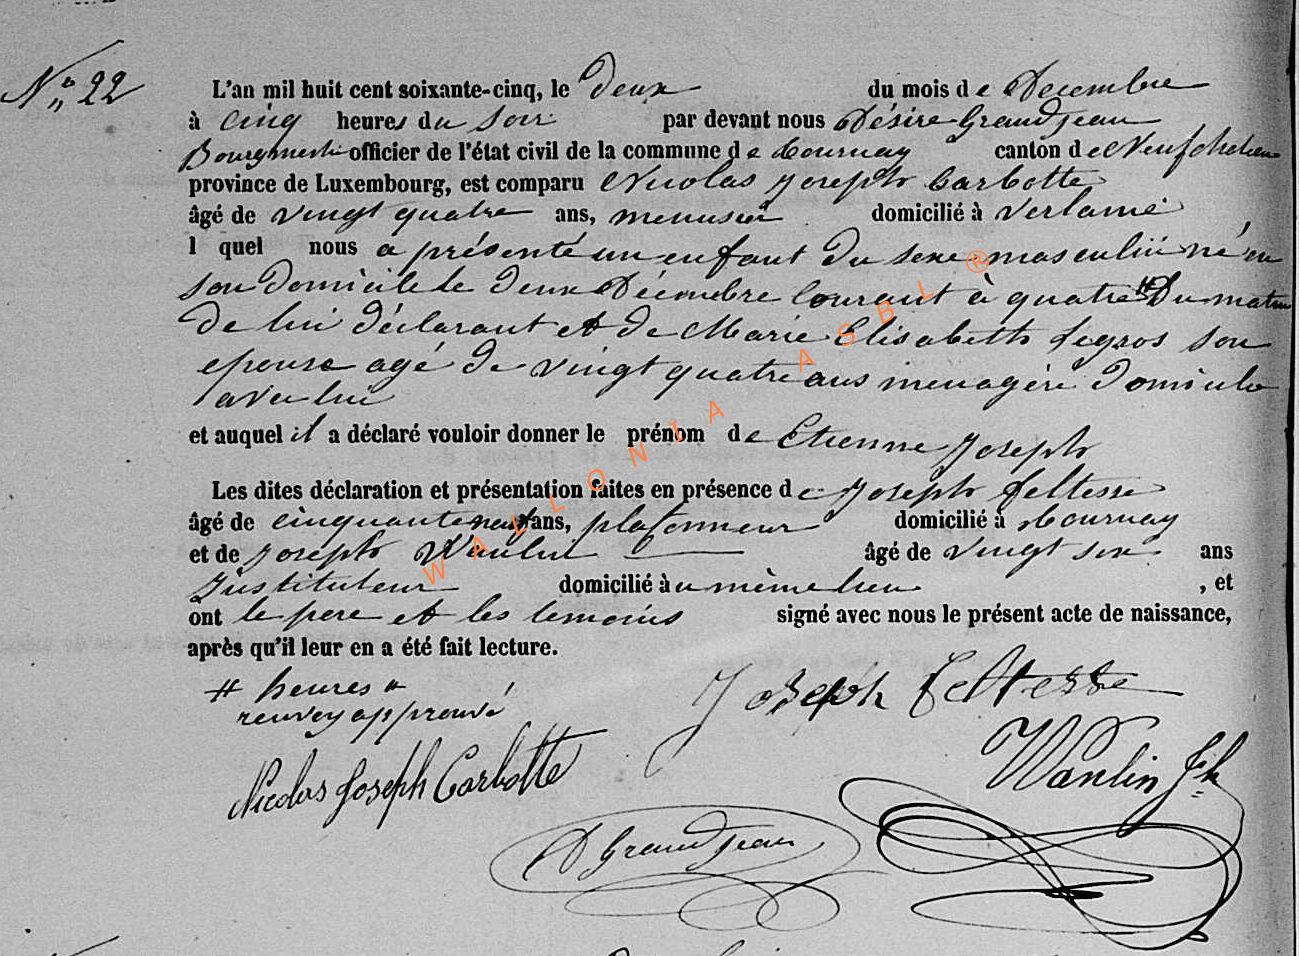 N° 22
L'an mil huit cent soixante-cinq, le Deux du mois de Décembre
à cinq heures du soir par devant nous Désiré Grandjean
Bourgmestre officier de l'état civil de la commune de Tournay canton de Neufchateau
province de Luxembourg, est comparu Nicolas Joseph Carbotte
âgé de vingt quatre ans, menusier domicilié à Verlaine
l quel nous a présenté un enfant du sexe masculin né en
son domicile le deux Décembre courant à quatre # du matin
de lui déclarant et de Marie Elisabeth Legros son
epouse agé de vingt quatre ans menagère domicilié
avec lui
et auquel il a déclaré vouloir donner le prénom de Etienne Joseph
Les dites déclaration et présentation faites en présence de Joseph Feltesse
âgé de cinquante neuf ans, plafonneur domicilié à Tournay
et de Joseph Wanlin âgé de vingt six ans
Instituteur domicilié au même lieu , et
ont le pere et les temoins signé avec nous le présent acte de naissance,
après qu'il leur en a été fait lecture.
# heures "
renvoy approuvé
Joseph Feltesse
Nicolas Joseph Carbotte
Wanlin Jh
D Grandjean
WALLONIA ASBL ®